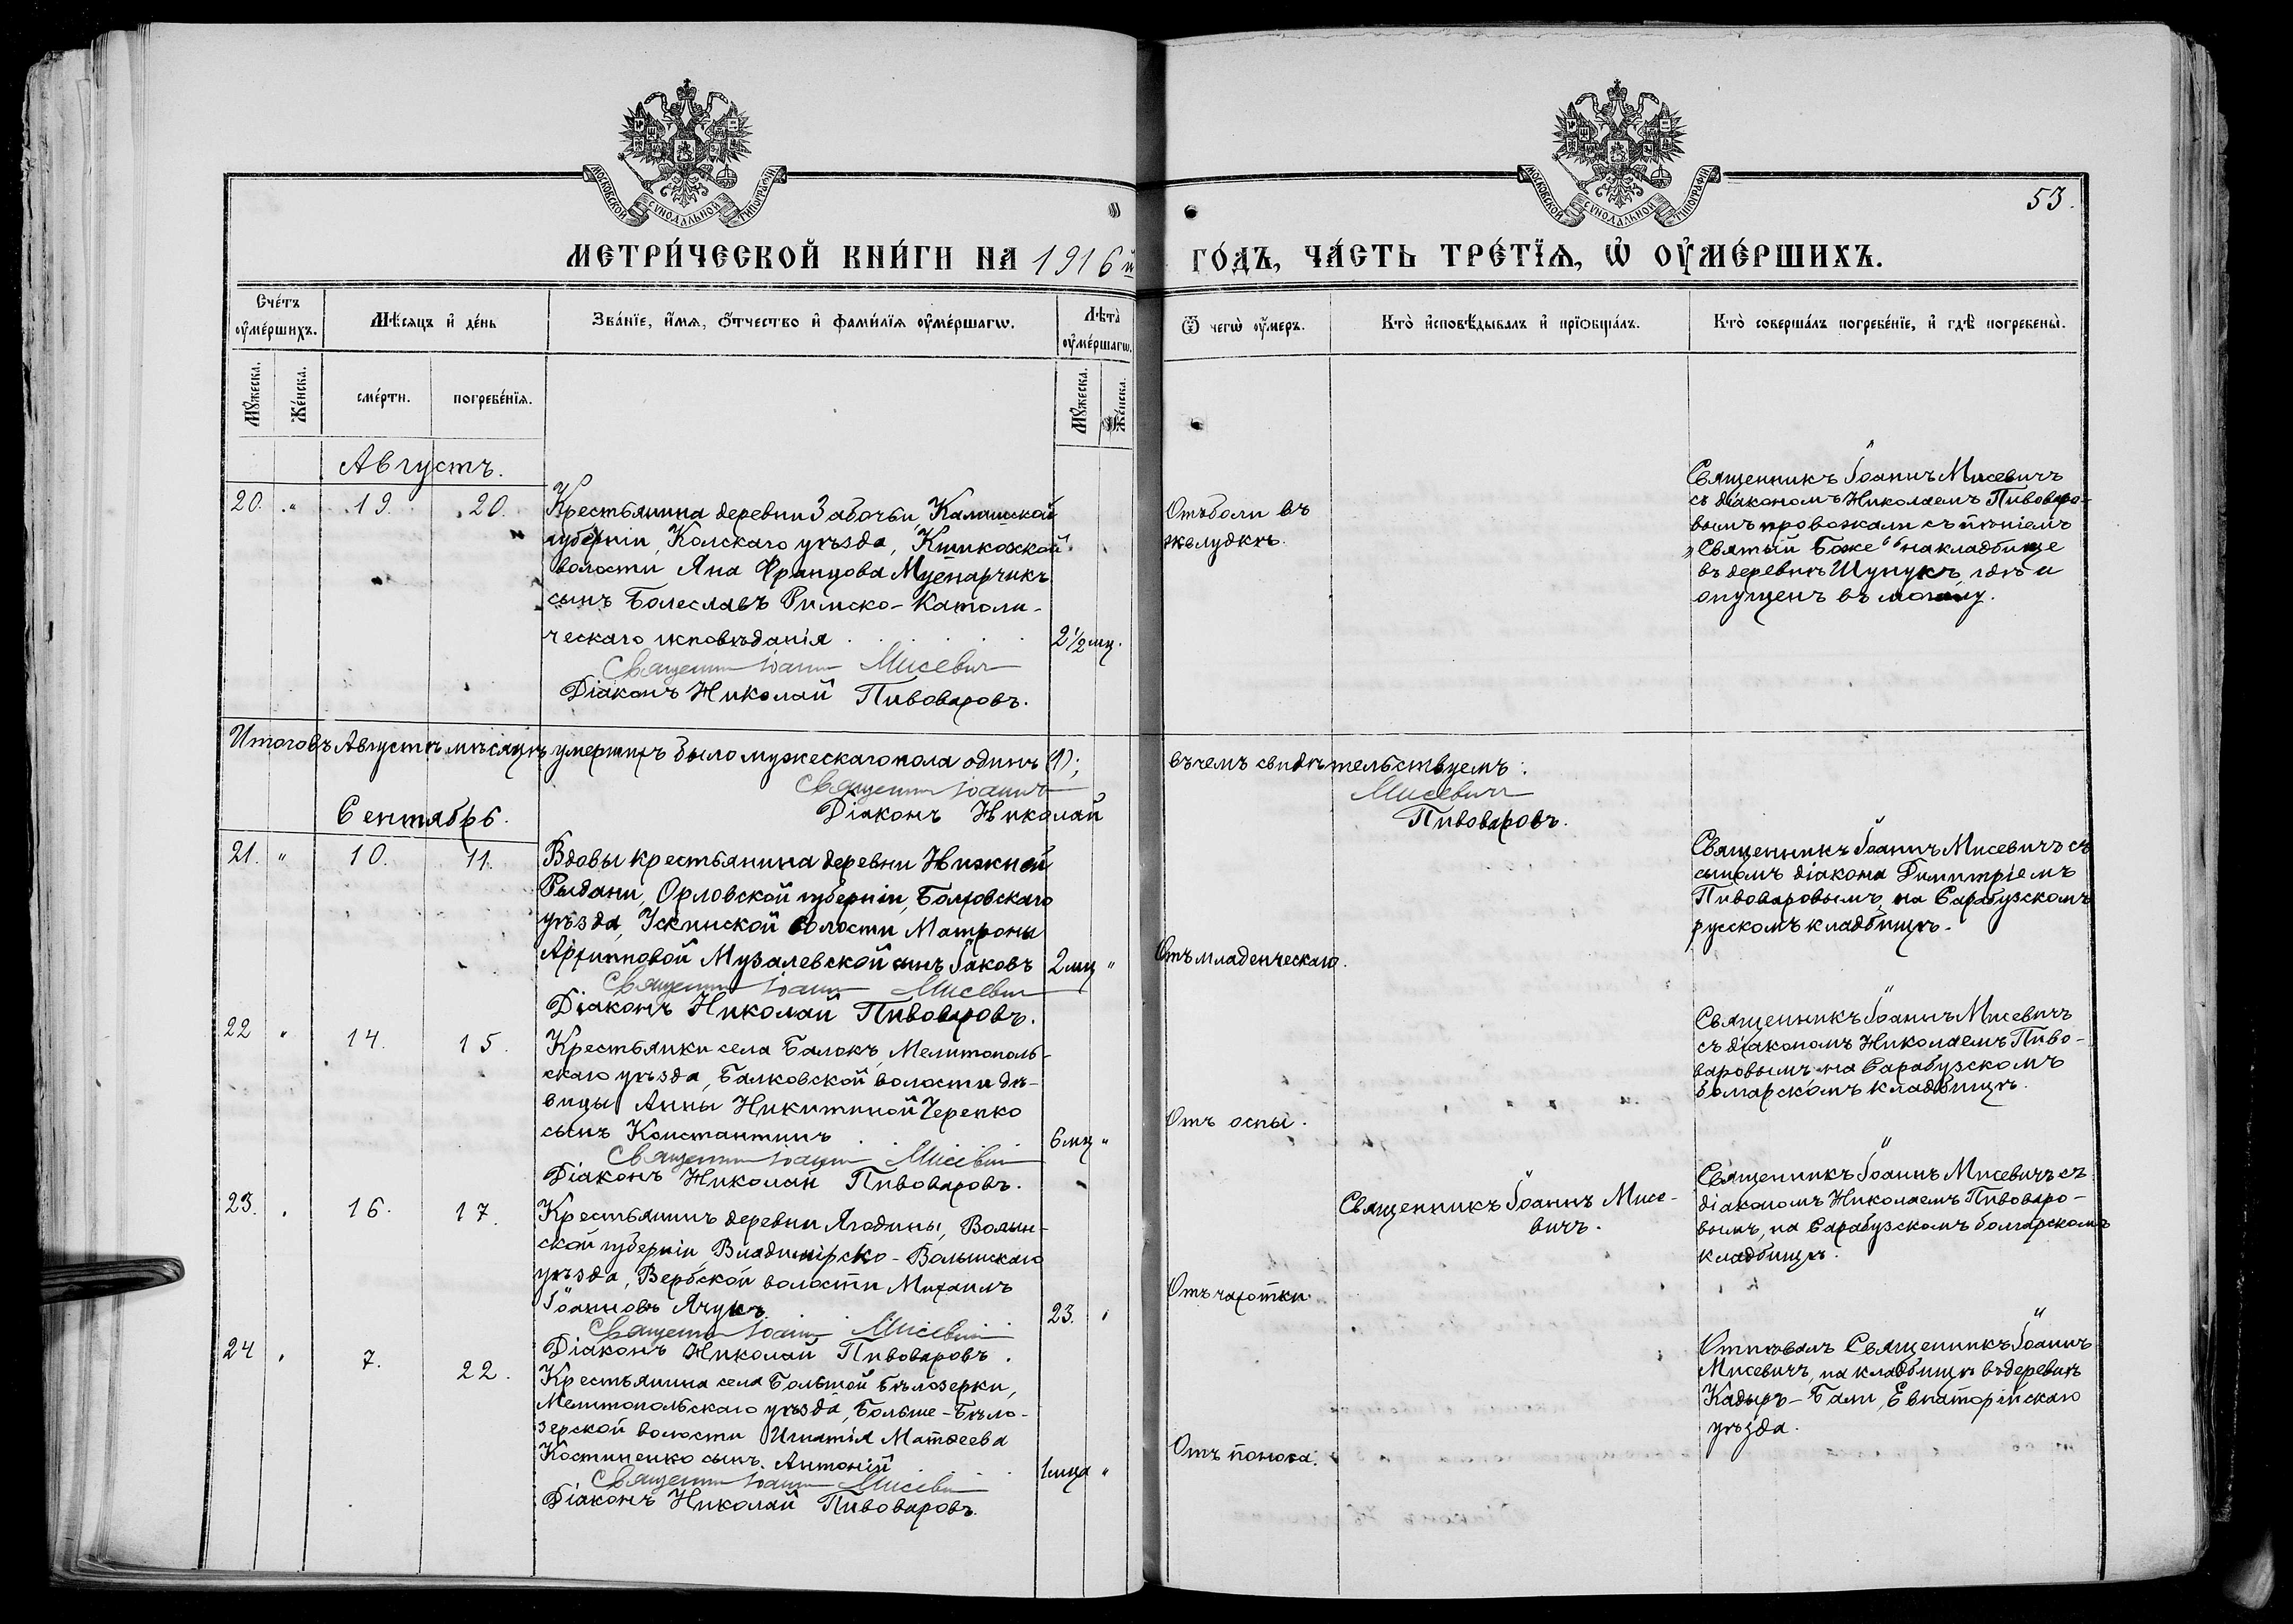 МОСКОВСКОЙ СѴНОДАЛЬНОЙ ТИПОГРАФІИ
МОСКОВСКОЙ СѴНОДАЛЬНОЙ ТИПОГРАФІИ
53.
МЕТРИ́ЧЕСКОЙ КНИ́ГИ НА 1916й ГО́ДЪ, ЧА́СТЬ ТРЕ́ТЇѦ, Ѡ ОУ҆МЕ́РШИХЪ.
Сче́тъ оу҆ме́ршихъ.
Мѣ́сяцъ и҆ де́нь
Зва́нїе, и҆́мѧ, ѻ҆́тчество и҆ фамѝлїѧ оу҆ме́ршагѡ.
Лѣ́та оу҆ме́ршагѡ.
Ѿ чегѡ̀ оу҆́меръ.
Кто̀ и҆сповѣ́дывалъ и҆ прїѡбща́лъ.
Кто̀ соверша́лъ погребе́нїе, и҆ гдѣ̀ погребены̀.
Мꙋ́жеска.
Же́нска.
сме́рти.
погребе́нїѧ.
Мꙋ́жеска.
Же́нска.
Августъ.
20. " 19. 20.
Крестьянина деревни Заборчьи, Калишской
губерніи, Колскаго уѣзда, Кшиковской
волости Яна Францова
сынъ Болеславъ Римско-Католи-
ческаго исповѣданія
2½ мц.
Священникъ Іоаннъ Мисевичъ
Діаконъ Николай Пивоваровъ.
Отъ боли въ
желудкѣ.
Священникъ Іоаннъ Мисевичъ
съ діакономъ Николаемъ Пивоваро-
вымъ провожали съ пѣніемъ
„Святый Боже“ на кладбище
въ деревнѣ Шунукъ, гдѣ и
опущенъ въ могилу.
Итого въ Августѣ мѣсяцѣ умершихъ было мужескаго пола одинъ (1); въ чемъ свидѣтельствуемъ:
Священникъ Іоаннъ Мисевичъ
Діаконъ Николай Пивоваровъ.
Сентябрь.
21. " 10. 11.
Вдовы крестьянина деревни Нижней
Рыдани, Орловской губерніи, Болховскаго
уѣзда, волости Матроны
Архиповой Музалевской сынъ Іаковъ
2 мц "
Священникъ Іоаннъ Мисевичъ
Діаконъ Николай Пивоваровъ.
Отъ младенческаго.
Священникъ Іоаннъ Мисевичъ съ
сыномъ діакона Димитріемъ
Пивоваровымъ, на Сарабузскомъ
русскомъ кладбищѣ.
22 " 14. 15.
Крестьянки села Балокъ, Мелитополь-
скаго уѣзда, Балковской волости дѣ-
вицы Анны Никитиной Черепко
сынъ Константинъ
6 мц "
Священникъ Іоаннъ Мисевичъ
Діаконъ Николай Пивоваровъ.
Отъ оспы.
Священникъ Іоаннъ Мисевичъ
съ діакономъ Николаемъ Пиво-
варовымъ на Сарабузскомъ
болгарскомъ кладбищѣ.
23. " 16. 17.
Крестьянинъ деревни Ягодины, Волын-
ской губерніи, Владимірско-Волынскаго
уѣзда, Вербской волости Михаилъ
Іоанновъ Ячукъ
23. "
Священникъ Іоаннъ Мисевичъ
Діаконъ Николай Пивоваровъ.
Отъ чахотки.
Священникъ Іоаннъ Мисе-
вичъ.
Священникъ Іоаннъ Мисевичъ съ
діакономъ Николаемъ Пивоваро-
вымъ, на Сарабузскомъ болгарскомъ
кладбищѣ.
24 " 7. 22.
Крестьянина села Большой Бѣлозерки,
Мелитопольскаго уѣзда, Больше-Бѣло-
зерской волости Игнатія Матѳеева
Костиненко сынъ Антоній
1 мца "
Священникъ Іоаннъ Мисевичъ
Діаконъ Николай Пивоваровъ.
Отъ поноса.
Отпѣвалъ Священникъ Іоаннъ
Мисевичъ, на кладбищѣ въ деревнѣ
Кадыръ-Бали, Евпаторійскаго
уѣзда.